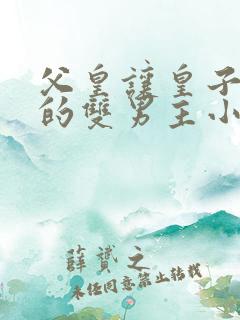 父皇讓皇子
的雙男主小
薛贇之
未経同意禁止转载